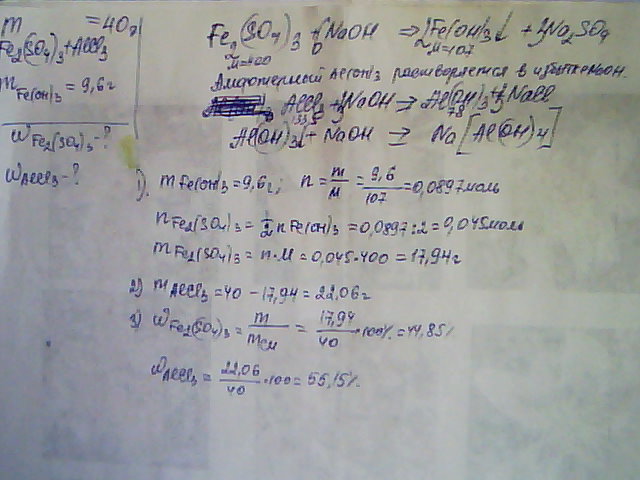 m = 40г
Fe2(SO4)3 + AlCl3
mFe(OH)3 = 9,6г
WFe2(SO4)3 - ?
WAlCl3 - ?
Fe2(SO4)3 + 6NaOH => 2Fe(OH)3↓ + 3Na2SO4
M=400 M=107
Амфотерный Al(OH)3 растворяется в избытке NaOH.
AlCl3 + 3NaOH => Al(OH)3 + 3NaCl
133,5 78
Al(OH)3↓ + NaOH => Na[Al(OH)4]
1). mFe(OH)3 = 9,6г; n = m/M = 9,6/107 = 0,0897моль
nFe2(SO4)3 = 1/2 nFe(OH)3 = 0,0897:2 = 0,045моль
mFe2(SO4)3 = n·M = 0,045·400 = 17,94г
2) mAlCl3 = 40 - 17,94 = 22,06г
3) WFe2(SO4)3 = m/mсм = 17,94/40 ·100% = 44,85%
WAlCl3 = 22,06/40 ·100 = 55,15%